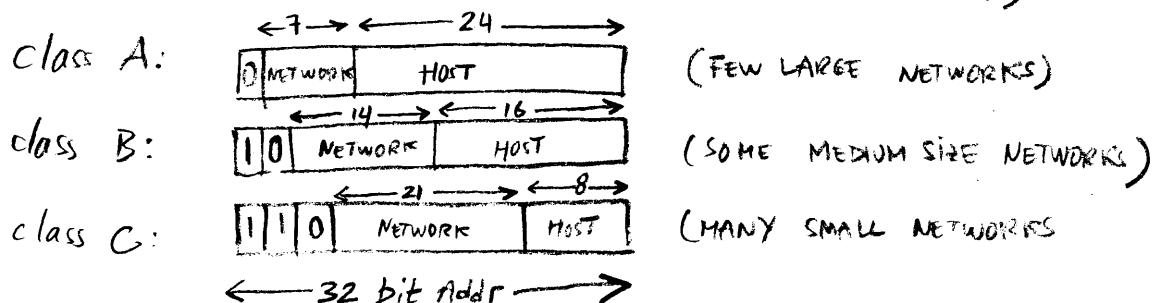 7 24
class A: 0 NETWORK HOST (FEW LARGE NETWORKS)
14 16
class B: 1 0 NETWORK HOST (SOME MEDIUM SIZE NETWORKS)
21 8
class C: 1 1 0 NETWORK HOST (MANY SMALL NETWORKS
32 bit Addr